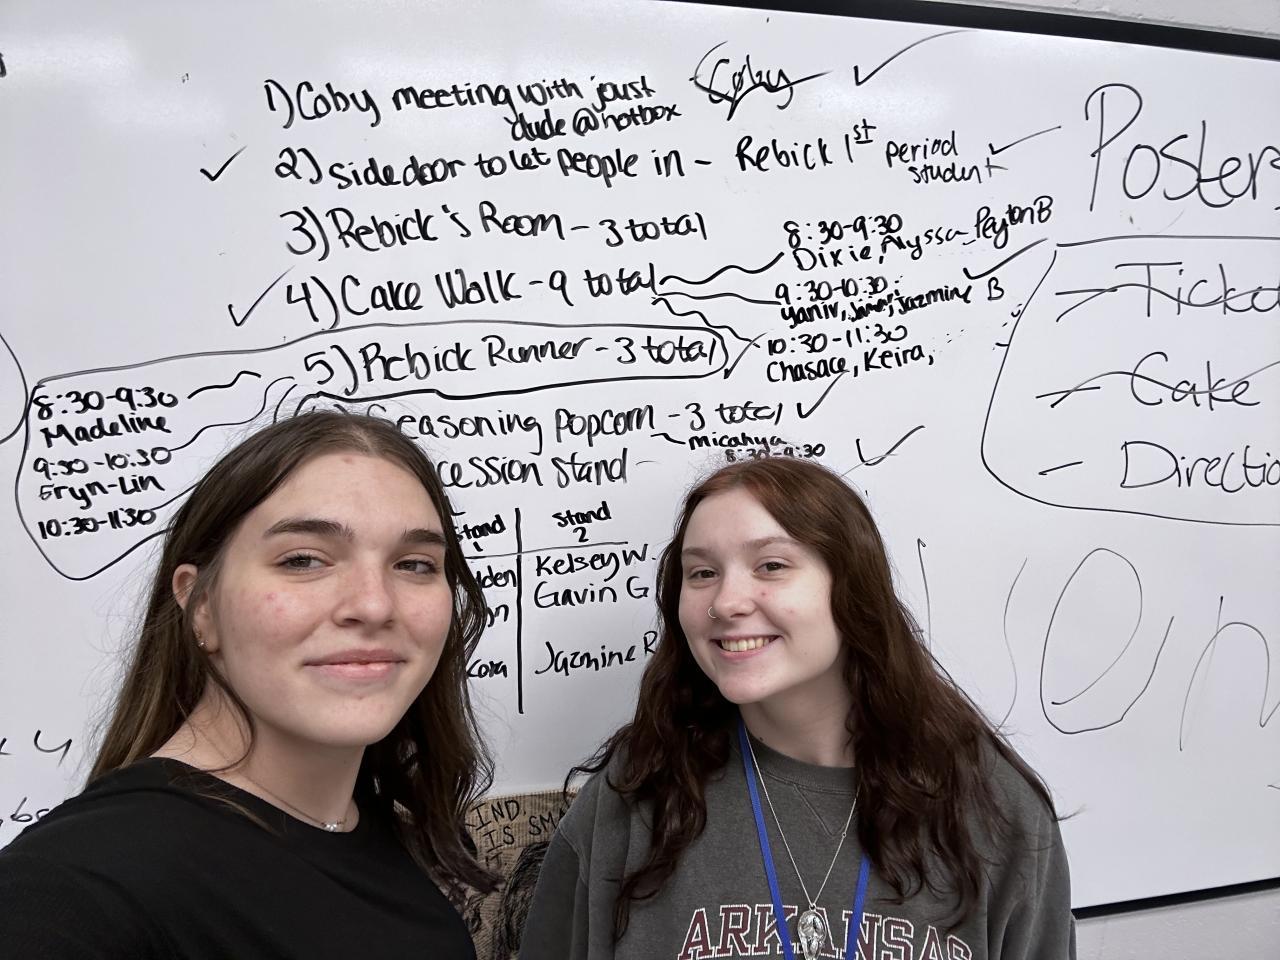 1) Coby meeting with joust
dude @ hotbox
Coby
2) side door to let people in - Rebick 1st period
student
3) Rebick's Room - 3 total
4) Cake Walk - 9 total
8:30-9:30
Dixie, Alyssa, Peyton B
9:30-10:30
Yaniv, Jazmine B
10:30-11:30
Chasace, Keira,
5) Rebick Runner - 3 total
8:30-9:30
Madeline
9:30-10:30
Eryn-Lin
10:30-11:30
easoning popcorn - 3 total
micahya
8:30-9:30
cession stand -
stand
1
stand
2
Kelsey W.
Gavin G
Jazmine R
Poster
- Ticke
- Cake
- Directio
KIND
IS SMA
ARKANSAS